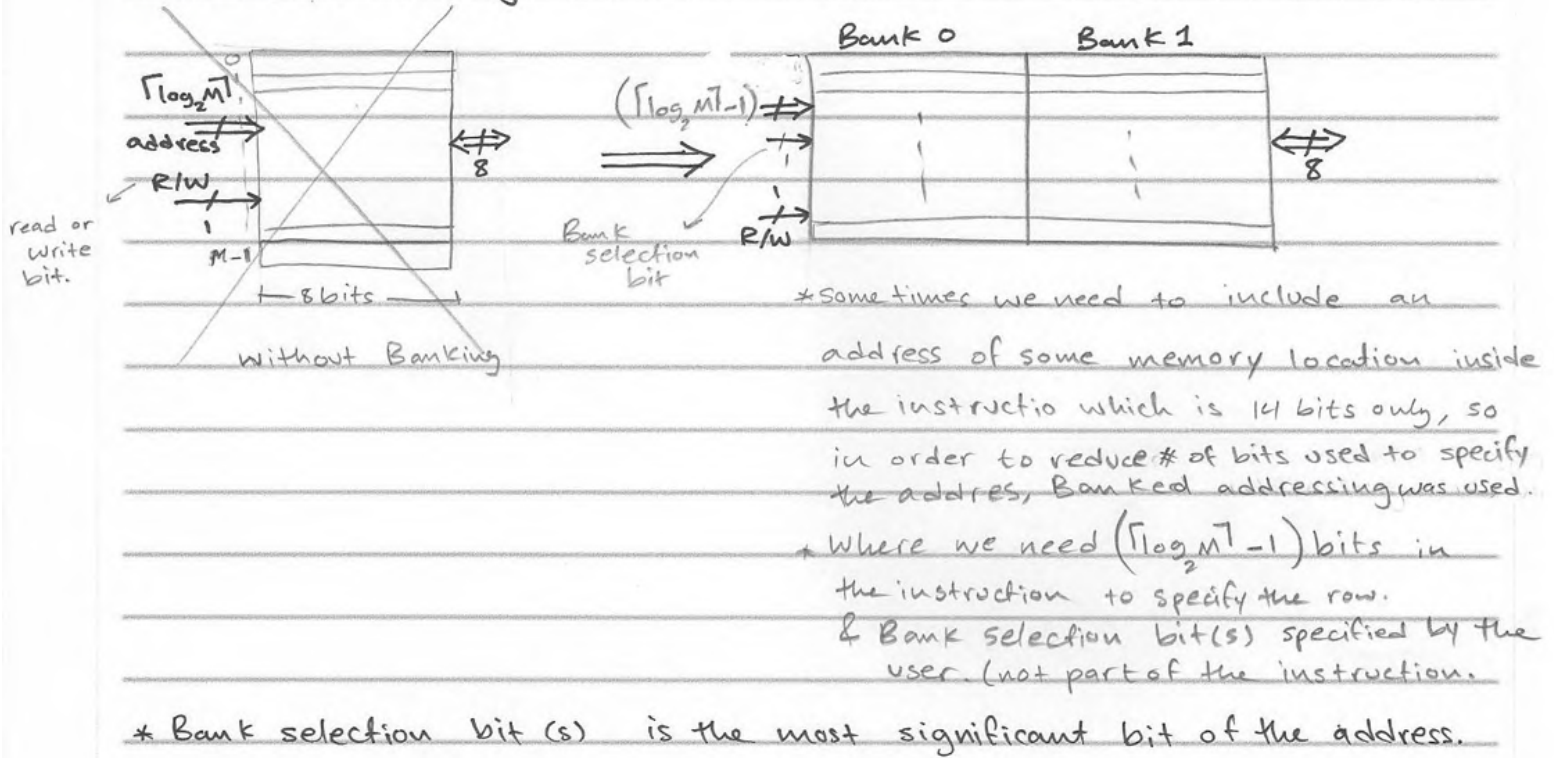 Bank 0 Bank 1
0
⌈log₂M⌉
address
R/W
1
M-1
8
8 bits
read or
write
bit.
without Banking
(⌈log₂M⌉-1)
1
Bank
selection
bit
R/W
8
* some times we need to include an
address of some memory location inside
the instructio which is 14 bits only, so
in order to reduce # of bits used to specify
the addres, Banked addressing was used.
* Where we need (⌈log₂M⌉-1) bits in
the instruction to specify the row.
& Bank selection bit(s) specified by the
user. (not part of the instruction.
* Bank selection bit (s) is the most significant bit of the address.